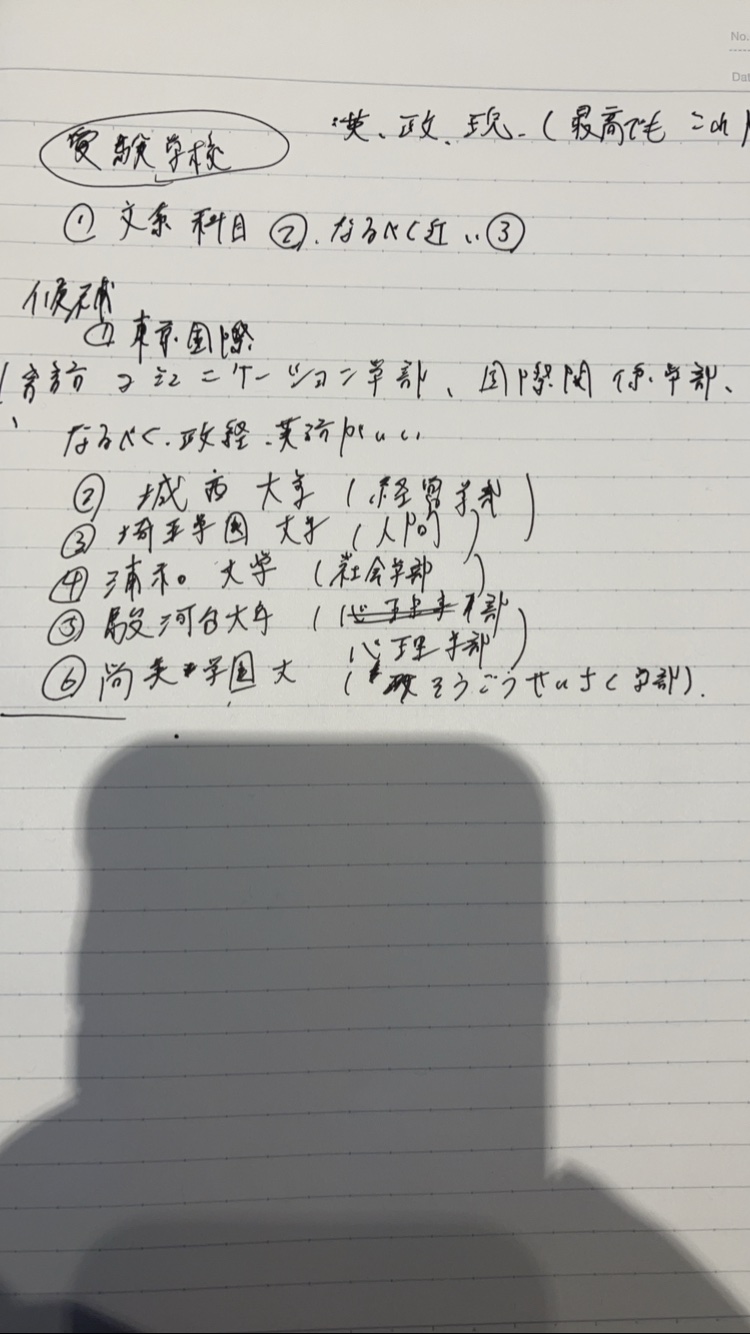 No.
Dat
受験学校
英、政、現、(最高でも これ
① 文系 科目 ②. なるべく近い ③
候補
① 東京国際
言語コミュニケーション学部、国際関係学部、
なるべく、政経、英語がいい
② 城西大学 (経営学部)
③ 埼玉学園大学 (人間)
④ 浦和大学 (社会学部)
⑤ 駿河台大学 (
心理学部)
⑥ 尚美学園大 (そうごうせいさく学部).